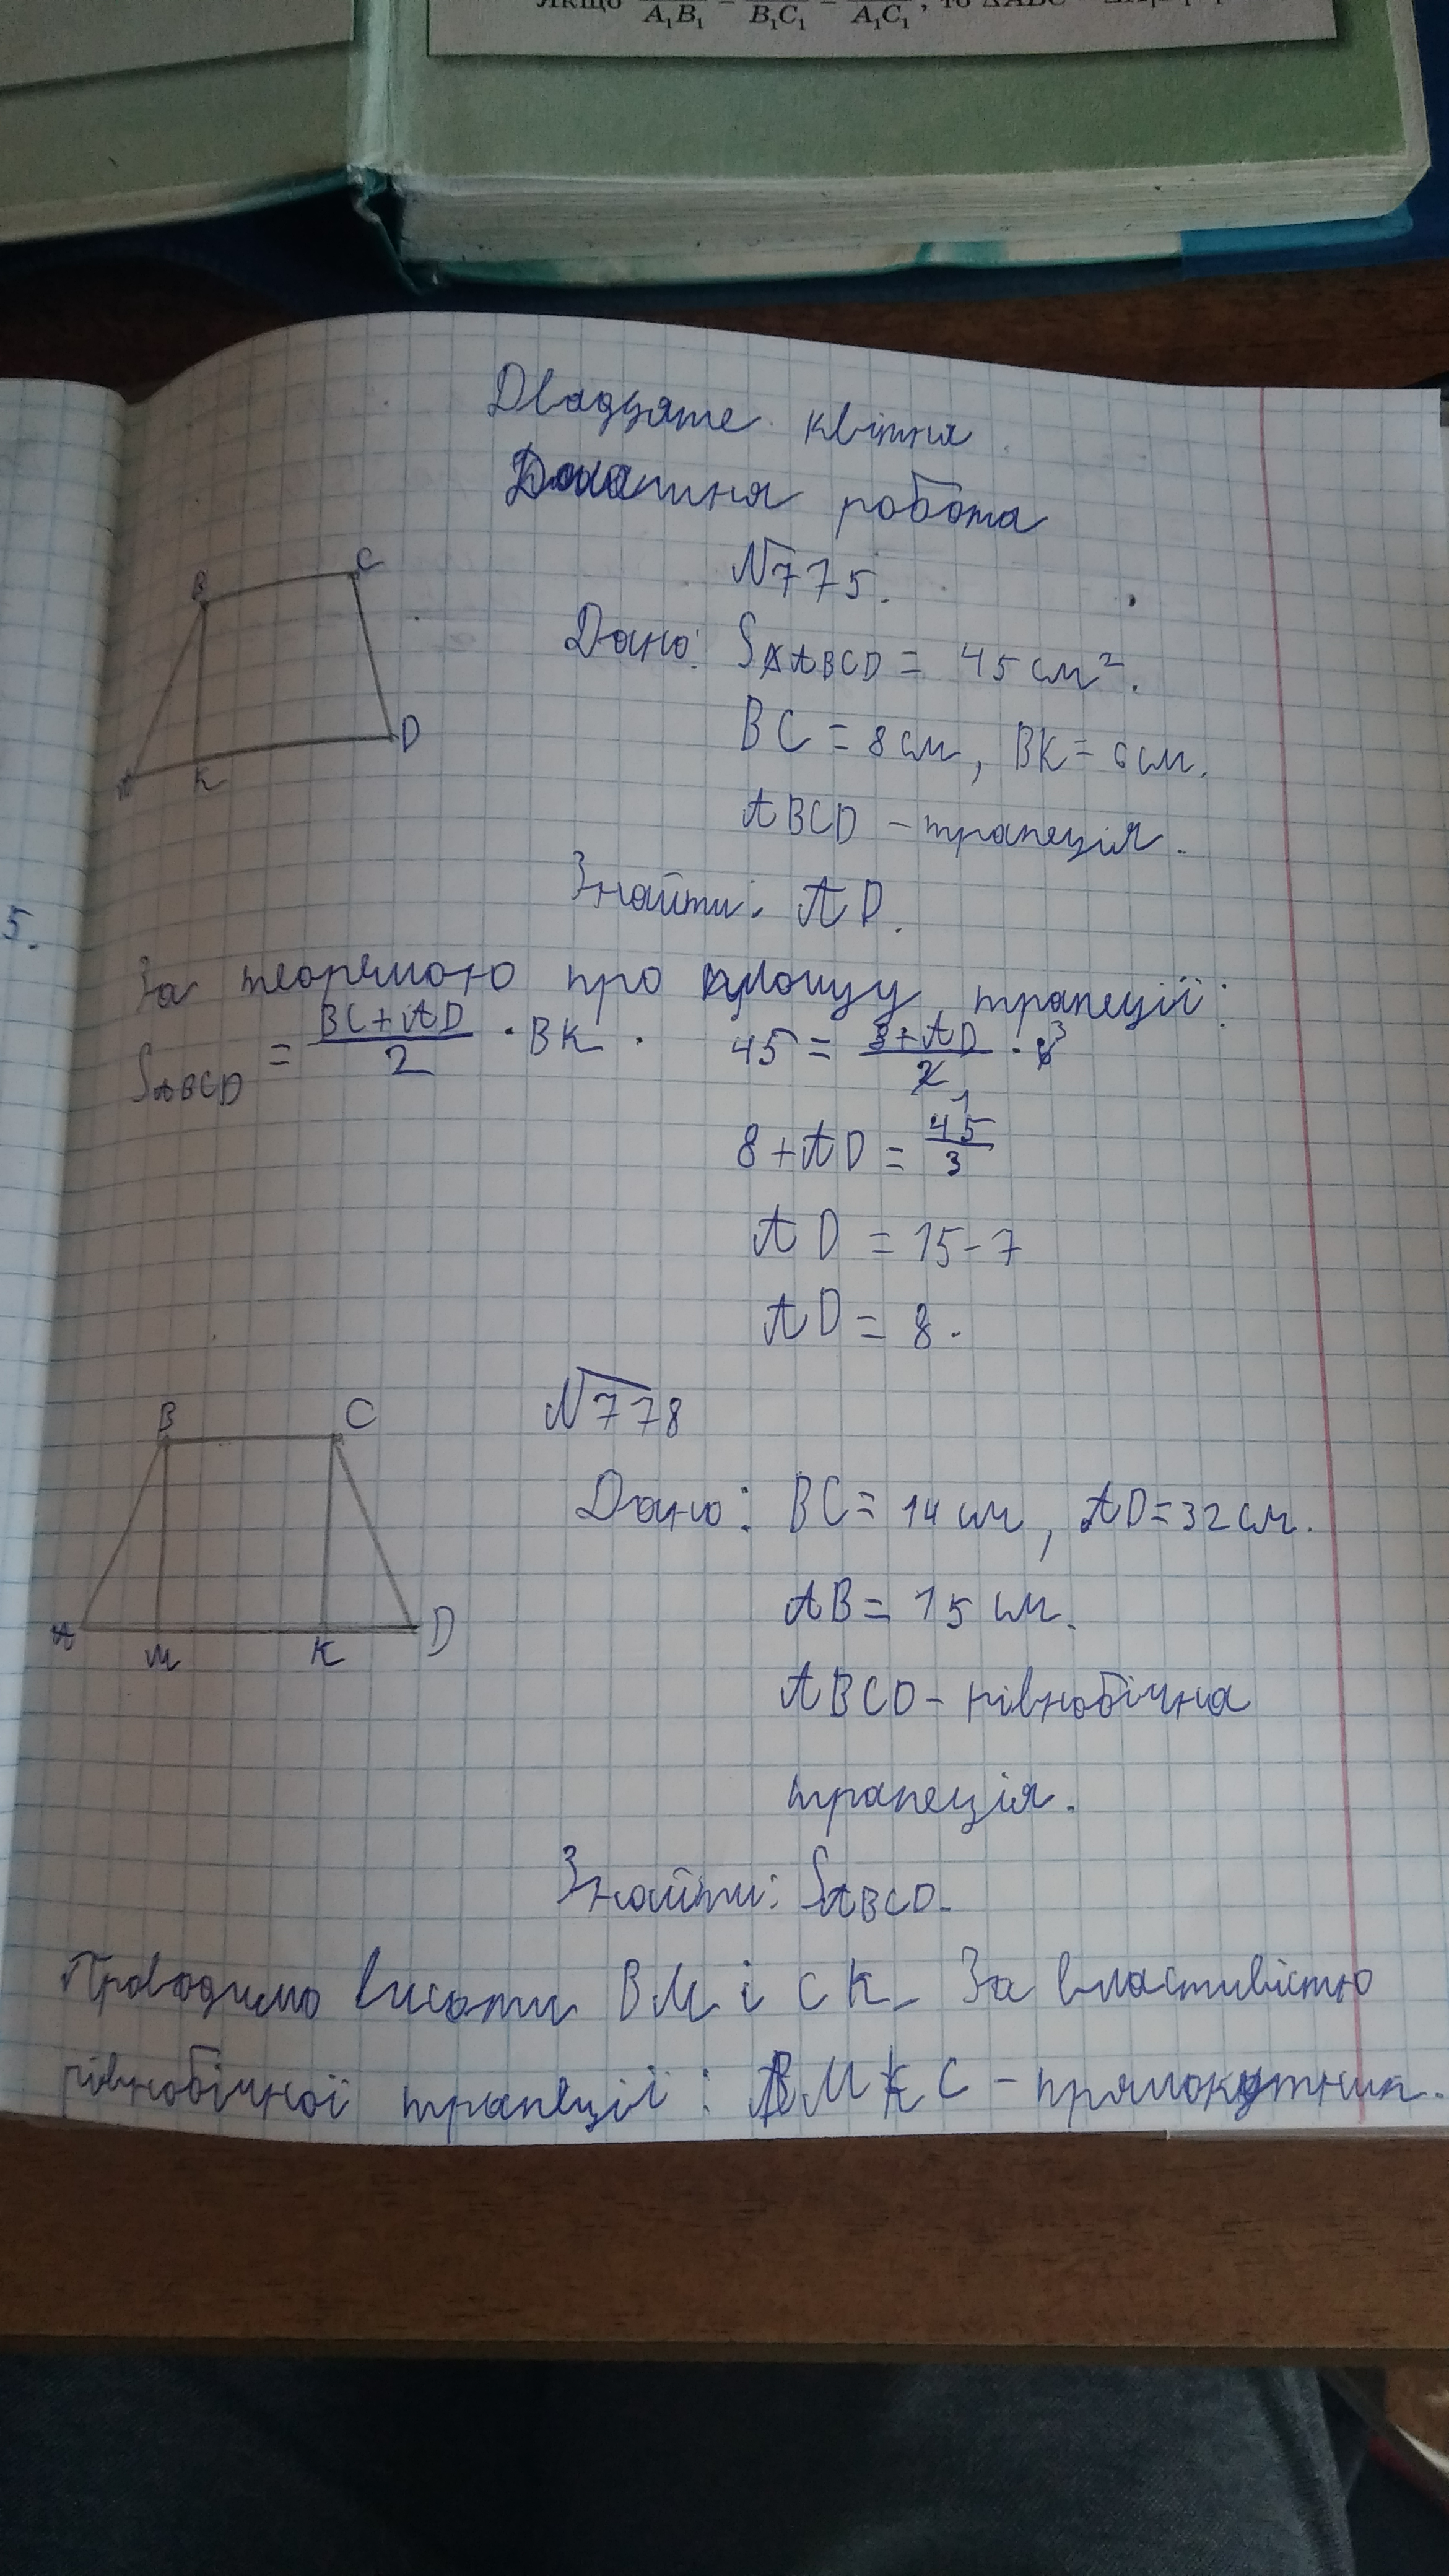 Якщо A₁B₁ = B₁C₁ = A₁C₁, то ΔABC
Двадцяте квітня
Домашня робота
№775.
B C
A K D
Дано: SABCD = 45 см².
BC = 8 см, BK = 6 см.
ABCD – трапеція.
Знайти: AD.
5.
За теоремою про площу трапеції:
SABCD = (BC+AD)/2 · BK. 45 = (8+AD)/2 · 6 3
1
8+AD = 45/3
AD = 15-7
AD = 8.
№778
B C
A M K D
Дано: BC = 14 см, AD = 32 см.
AB = 15 см.
ABCD – рівнобічна
трапеція.
Знайти: SABCD.
Проводимо висоти BM і CK. За властивістю
рівнобічної трапеції: BMKC – прямокутник.